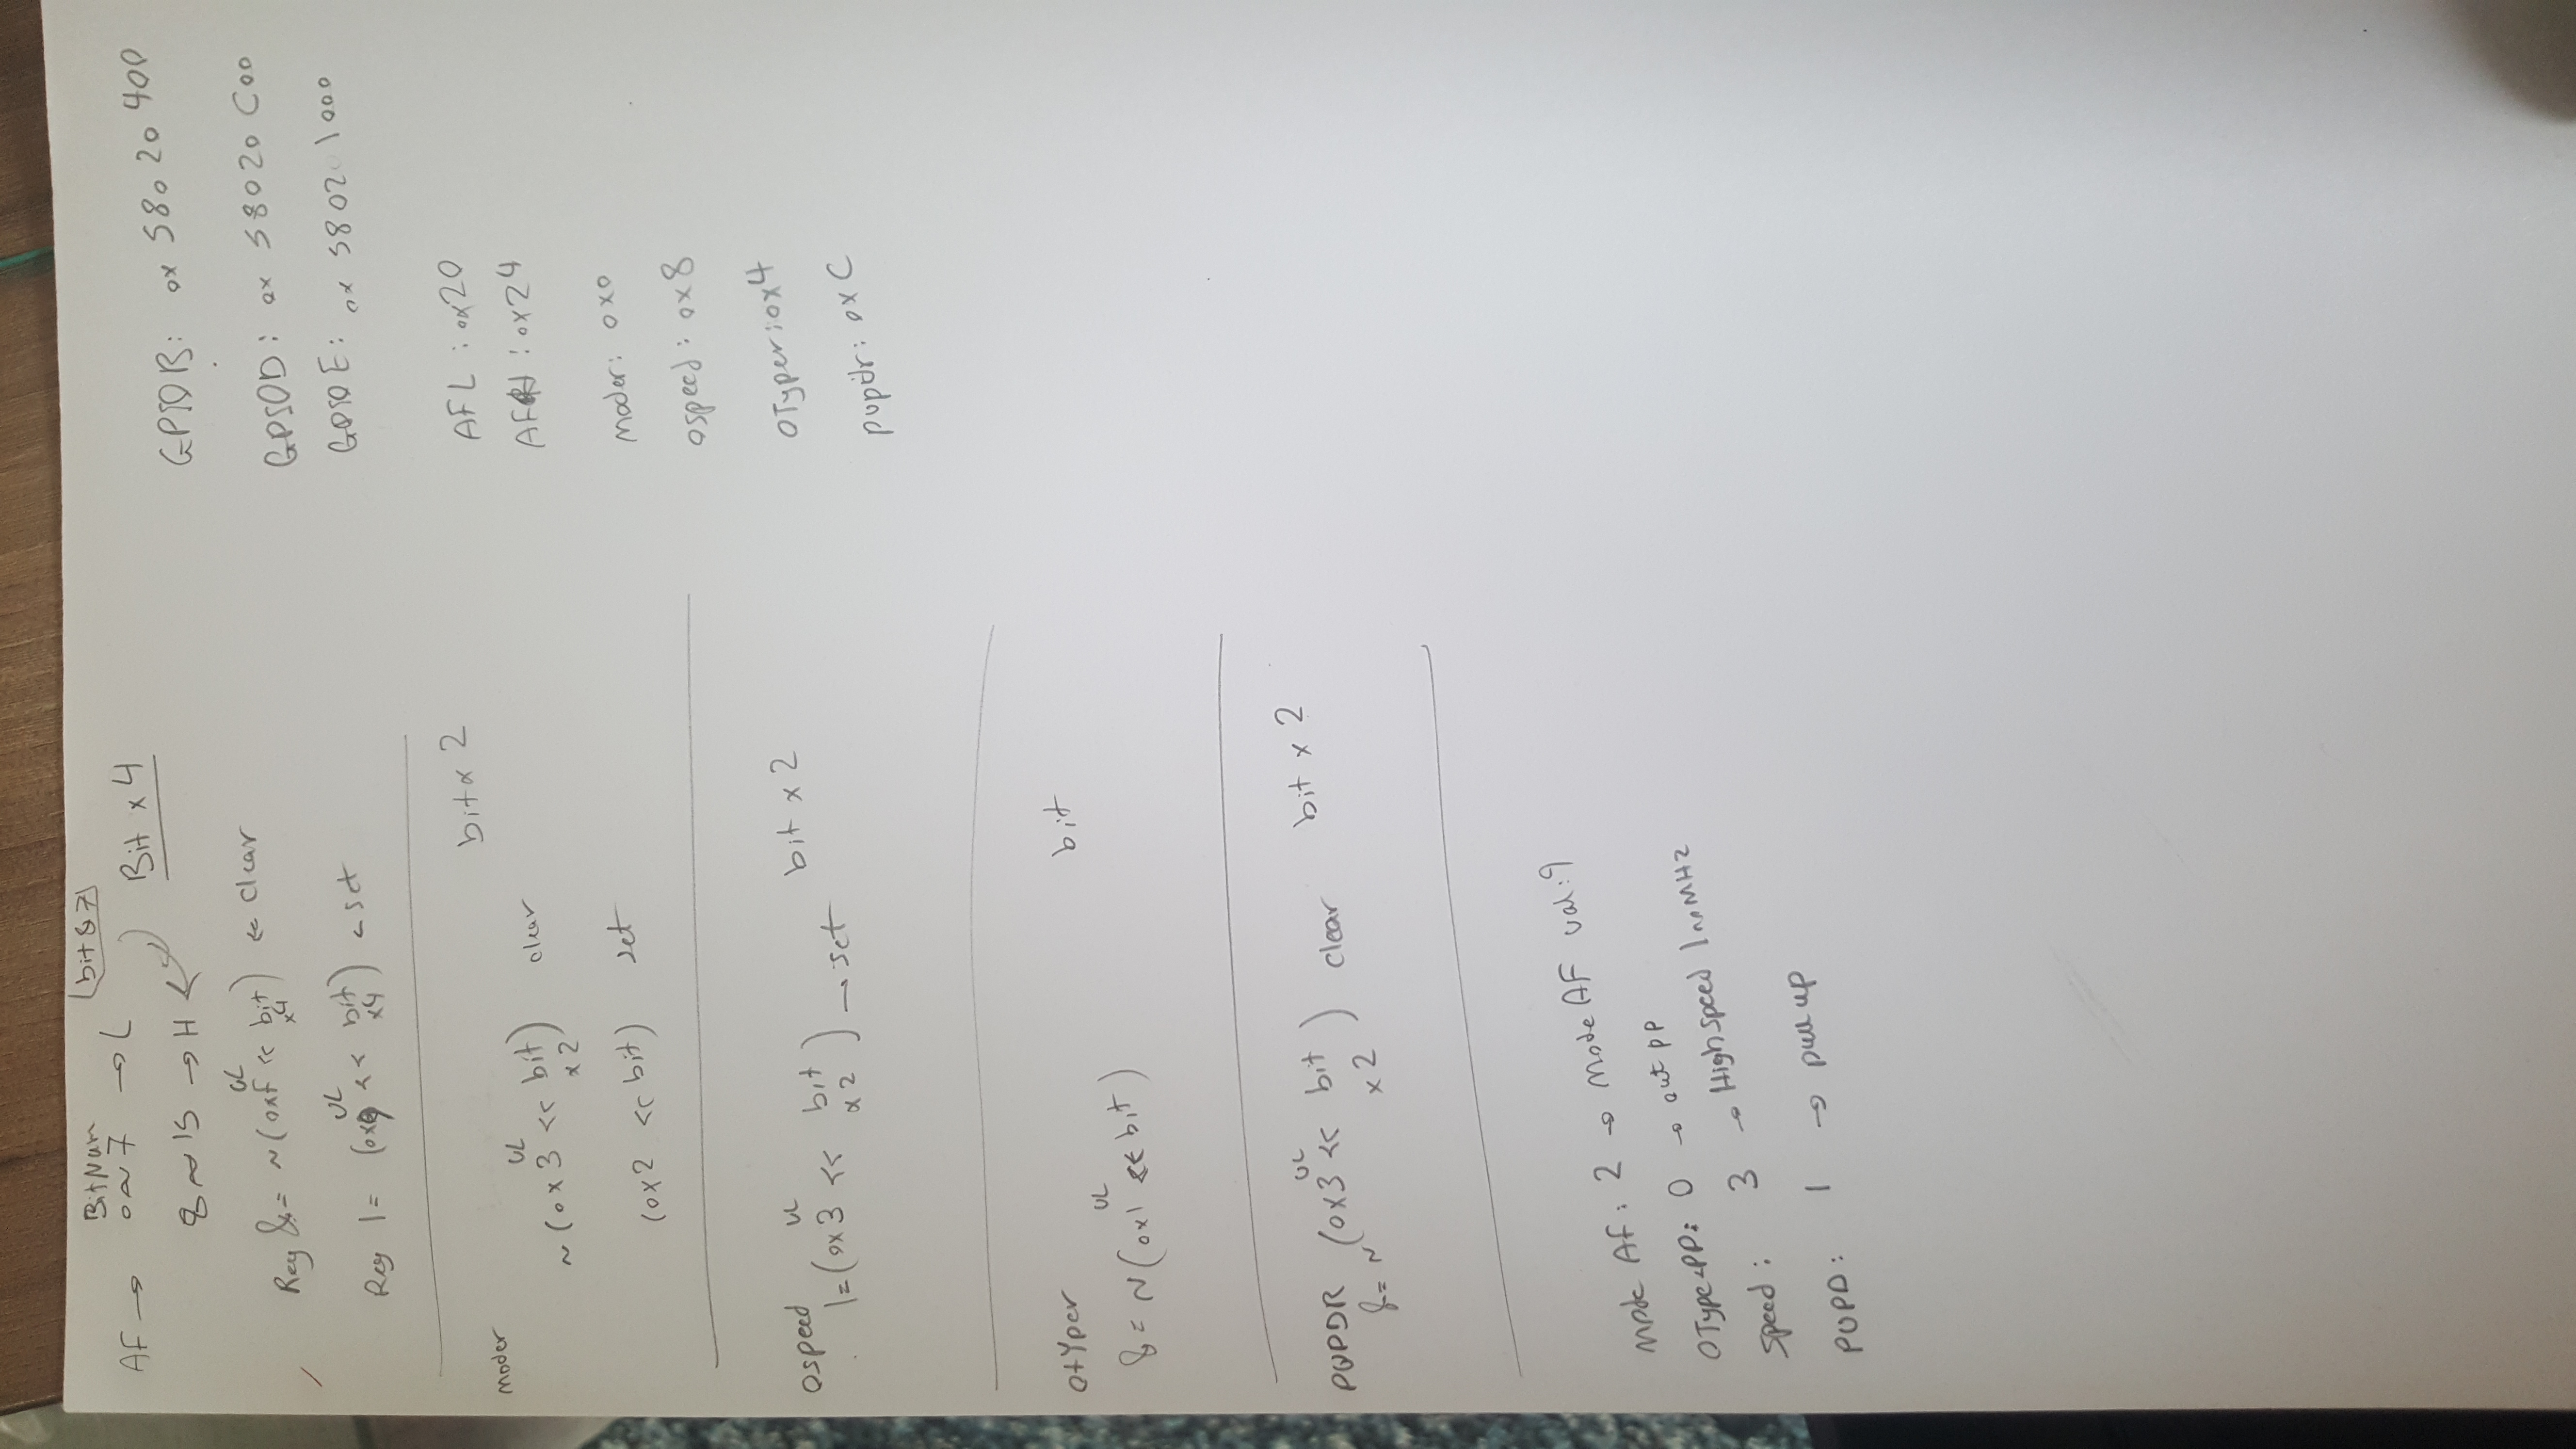 BitNum (bit & 7)
AF → 0 ~ 7 → L Bit x 4
8 ~ 15 → H
UL
Reg &= ~(0xF << bit x4) ← clear
UL
Reg |= (0x9 << bit x4) ← set
moder bit x 2
UL
~(0x3 << bit x2) clear
(0x2 << bit) set
Ospeed bit x 2
UL
|= (0x3 << bit x2) → set
OtYper bit
UL
&= ~(0x1 << bit)
PUPDR bit x 2
UL
&= ~(0x3 << bit x2) clear
Mode AF: 2 → Mode AF val:9
OType PP: 0 → out PP
Speed: 3 → High speed 100MHz
PUPD: 1 → pull up
GPIOB: 0x 58020400
GPIOD: 0x 58020C00
GPIOE: 0x 58021000
AFL: 0x20
AFH: 0x24
Moder: 0x0
Ospeed: 0x8
OTyper: 0x4
pupdr: 0xC